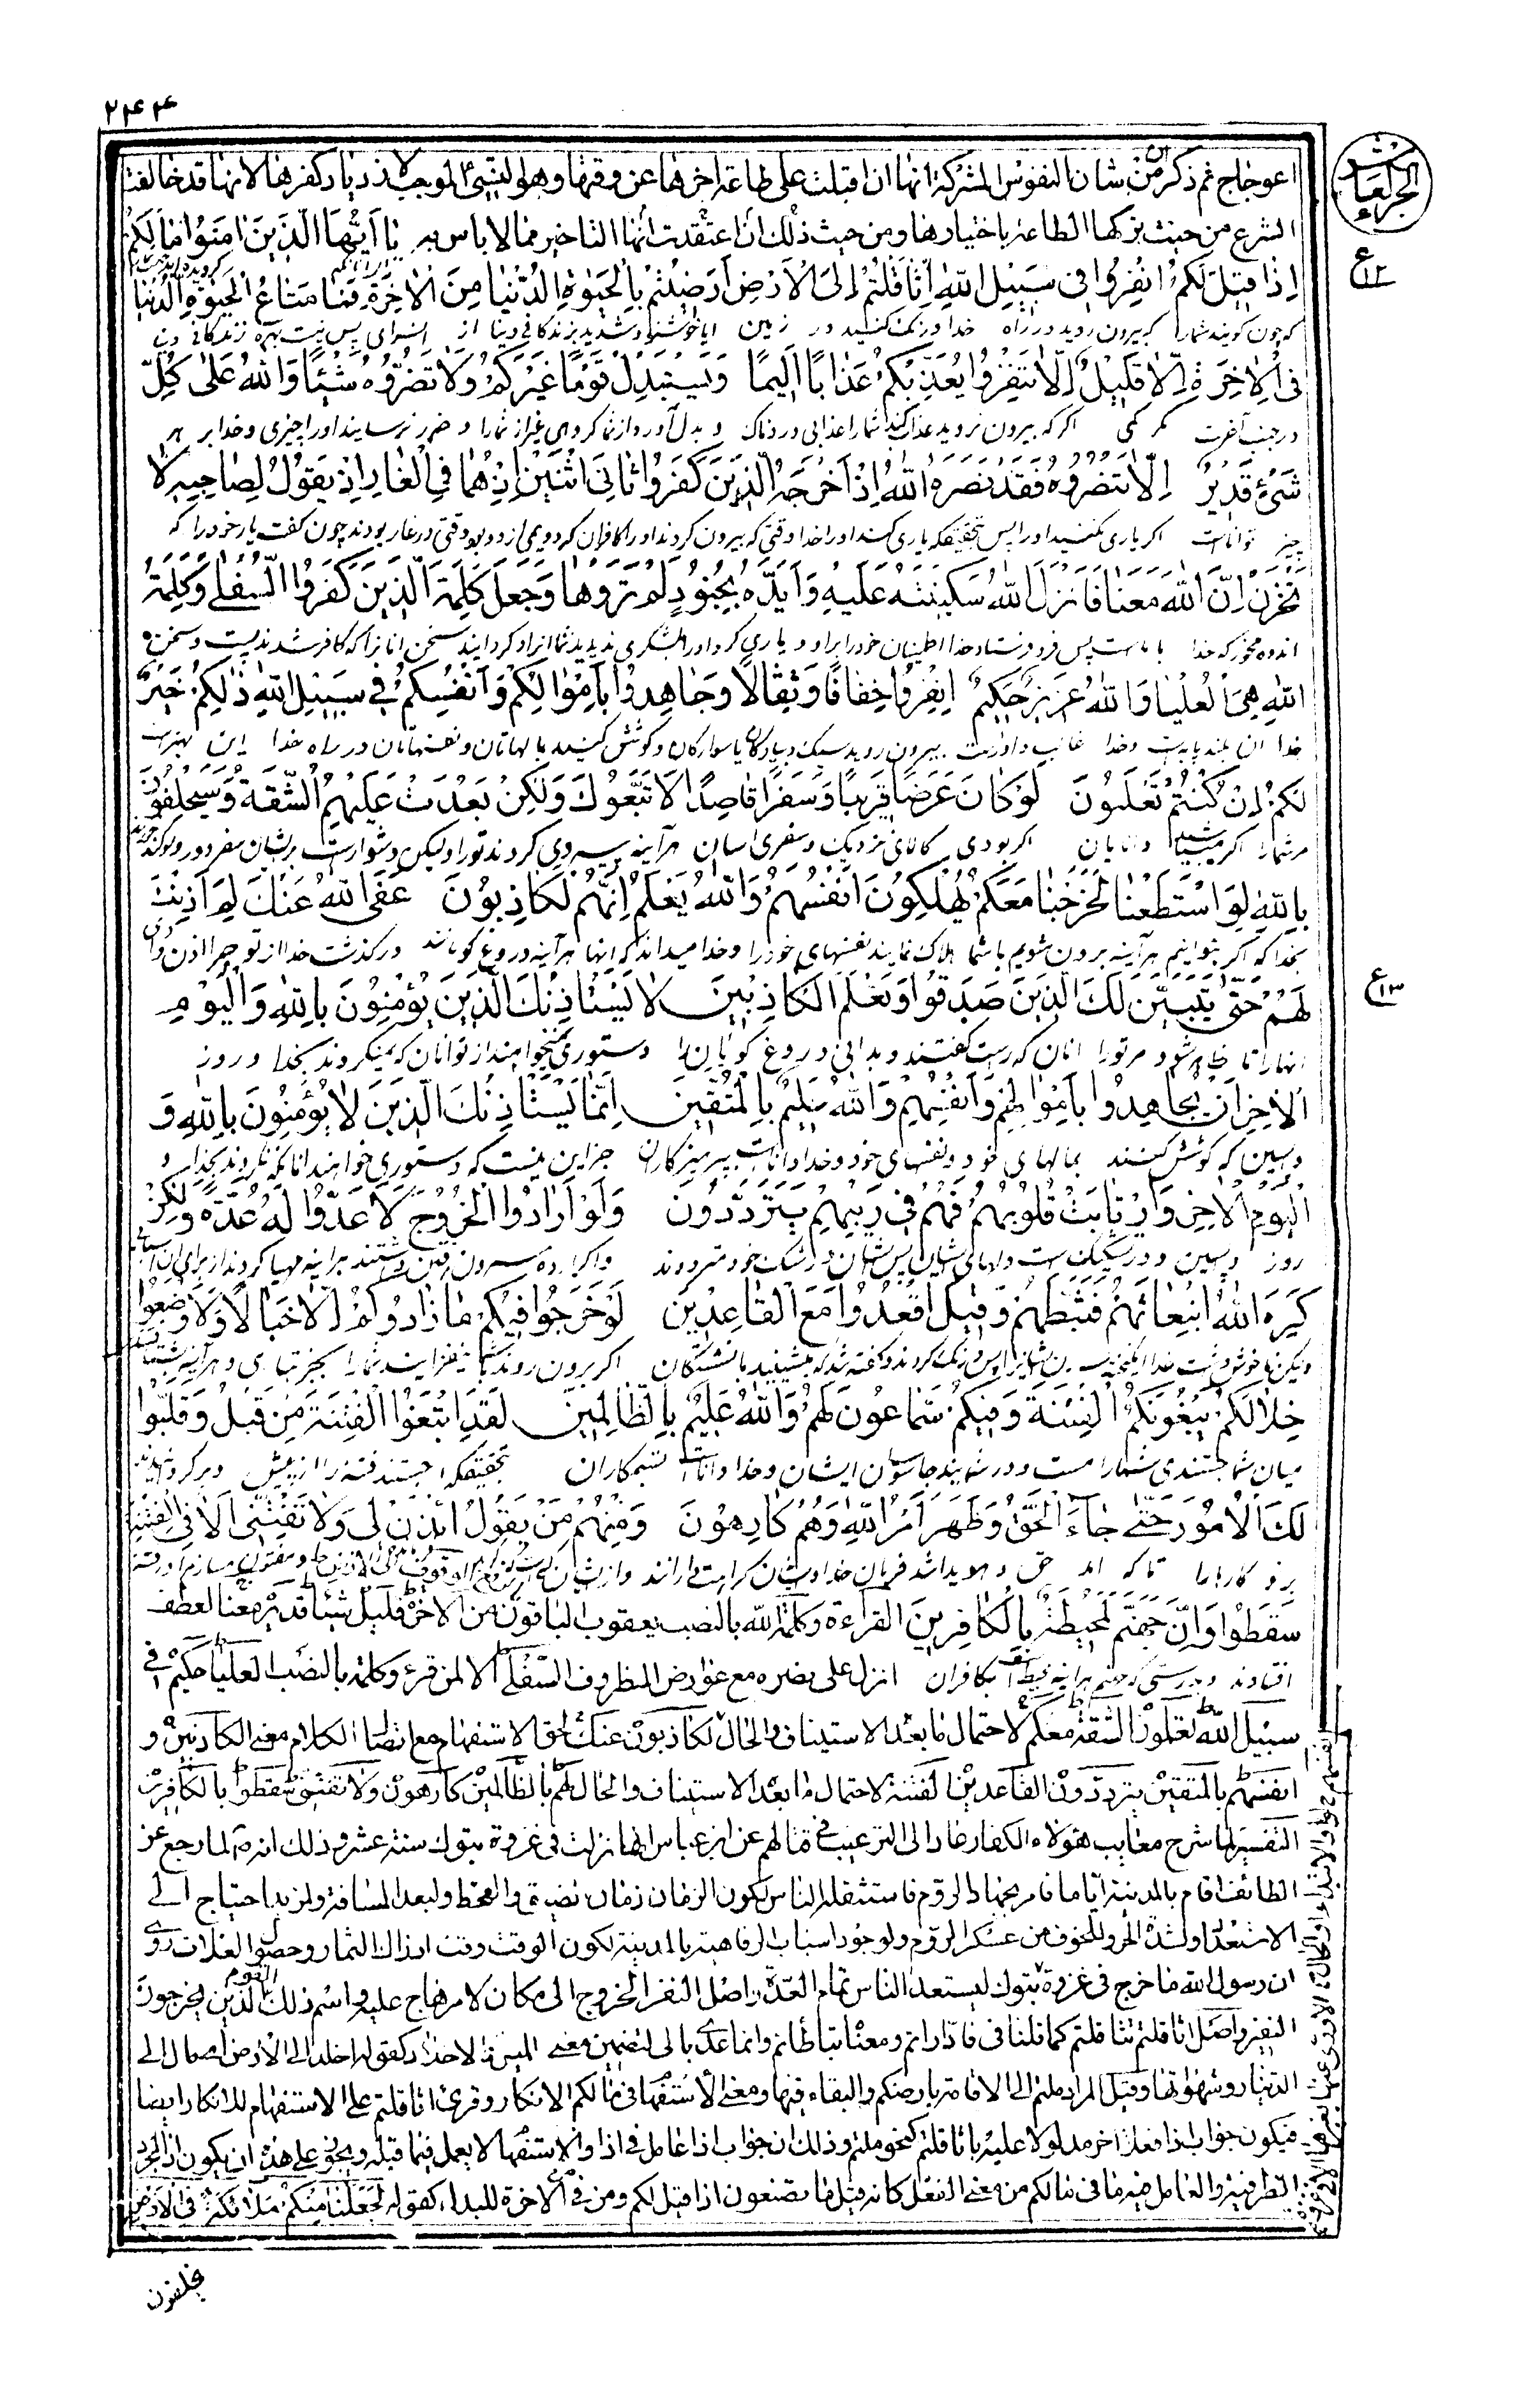 ۲۴۴
الجزء العاشر
اعوجاج ثم ذكر ان من شان النفوس المشركة انها ان اقبلت على طاعة اخرها عن وقتها وهو النسئ الموجب لازدياد كفرها لانها قد خالفت
الشرع من حيث تركها الطاعة باختيارها ومن حيث ذلك ان اعتقدت انها التاخير مما لا باس به يٰا اَيُّهَا الَّذينَ اٰمَنُوا مٰا لَكُمْ
ع ۱۲
اِذٰا قيلَ لَكُمُ انْفِرُوا فى سَبيلِ اللّٰهِ اثّٰاقَلْتُمْ اِلَى الْاَرْضِ اَرَضيتُمْ بِالْحَيٰوةِ الدُّنْيٰا مِنَ الْاٰخِرَةِ فَمٰا مَتٰاعُ الْحَيٰوةِ الدُّنْيٰا
كه چون گويند شما را كه بيرون رويد در راه خدا درنگ كنيد در زمين ايا خوشنود شديد بزندگانى دنيا از انسراى پس نيست بهره زندگانى دنيا
فِى الْاٰخِرَةِ اِلّٰا قَليلٌ اِلّٰا تَنْفِرُوا يُعَذِّبْكُمْ عَذٰابًا اَليمًا وَيَسْتَبْدِلْ قَوْمًا غَيْرَكُمْ وَلٰا تَضُرُّوهُ شَيْئًا وَاللّٰهُ عَلٰى كُلِّ
در جنب آخرت مگر كمى اگر كه بيرون نرويد عذاب كند شما را عذابى دردناك و بدل آورد از شما گروهى غير از شما را و ضرر نرسانيد او را چيزى و خدا بر هر
شَىْءٍ قَديرٌ اِلّٰا تَنْصُرُوهُ فَقَدْ نَصَرَهُ اللّٰهُ اِذْ اَخْرَجَهُ الَّذينَ كَفَرُوا ثٰانِىَ اثْنَيْنِ اِذْ هُمٰا فِى الْغٰارِ اِذْ يَقُولُ لِصٰاحِبِهِ لٰا
چيز تواناست اگر يارى نكنيد او را پس بتحقيقكه يارى كند او را خدا وقتى كه بيرون كردند او را كافران كه دويمى از دو بود وقتى در غار بودند چون گفت يار خود را كه
تَحْزَنْ اِنَّ اللّٰهَ مَعَنٰا فَاَنْزَلَ اللّٰهُ سَكينَتَهُ عَلَيْهِ وَاَيَّدَهُ بِجُنُودٍ لَمْ تَرَوْهٰا وَجَعَلَ كَلِمَةَ الَّذينَ كَفَرُوا السُّفْلٰى وَكَلِمَةُ
اندوه مخور كه خدا با ماست پس فرو فرستاد خدا اطمينان خود را بر او و يارى كرد او را بلشكرى نديديد شما انرا و گردانيد سخن انانرا كه كافر شدند پست و سخن
اللّٰهِ هِىَ الْعُلْيٰا وَاللّٰهُ عَزيزٌ حَكيمٌ انْفِرُوا خِفٰافًا وَثِقٰالًا وَجٰاهِدُوا بِاَمْوٰالِكُمْ وَاَنْفُسِكُمْ فى سَبيلِ اللّٰهِ ذٰلِكُمْ خَيْرٌ
خدا ان بلند پايه است و خدا غالب و داناست بيرون رويد سبك و پيادگان يا سوارگان و كوشش كنيد بمالهاتان و نفسهاتان در راه خدا اين بهتر است
لَكُمْ اِنْ كُنْتُمْ تَعْلَمُونَ لَوْ كٰانَ عَرَضًا قَريبًا وَسَفَرًا قٰاصِدًا لَاتَّبَعُوكَ وَلٰكِنْ بَعُدَتْ عَلَيْهِمُ الشُّقَّةُ وَسَيَحْلِفُونَ
مر شما را اگر ميباشيد دانايان اگر بودى كالائى نزديك و سفرى اسان هرآينه پيروى كردند تو را و ليكن دشوار است بر ايشان سفر دور و
بِاللّٰهِ لَوِ اسْتَطَعْنٰا لَخَرَجْنٰا مَعَكُمْ يُهْلِكُونَ اَنْفُسَهُمْ وَاللّٰهُ يَعْلَمُ اِنَّهُمْ لَكٰاذِبُونَ عَفَى اللّٰهُ عَنْكَ لِمَ اَذِنْتَ
بخدا كه اگر بتوانيم هرآينه بيرون شويم با شما هلاك نمايند نفسهاى خود را و خدا ميداند كه اينها هرآينه دروغ گويانند درگذشت خدا از تو چرا اذن دادى
ع ۱۳
لَهُمْ حَتّٰى يَتَبَيَّنَ لَكَ الَّذينَ صَدَقُوا وَتَعْلَمَ الْكٰاذِبينَ لٰا يَسْتَاْذِنُكَ الَّذينَ يُؤْمِنُونَ بِاللّٰهِ وَالْيَوْمِ
انها را تا ظاهر شود مر تو را انان كه راست گفتند و بدانى دروغ گويان را دستورى نميخواهند از تو انان كه ميگروند بخدا و روز
الْاٰخِرِ اَنْ يُجٰاهِدُوا بِاَمْوٰالِهِمْ وَاَنْفُسِهِمْ وَاللّٰهُ عَليمٌ بِالْمُتَّقينَ اِنَّمٰا يَسْتَاْذِنُكَ الَّذينَ لٰا يُؤْمِنُونَ بِاللّٰهِ وَ
وپسين كه كوشش كنند بمالهاى خود و نفسهاى خود و خدا داناست بپرهيزكاران جز اين نيست كه دستورى خواهند انانكه نگروند بخدا و
الْيَوْمِ الْاٰخِرِ وَارْتٰابَتْ قُلُوبُهُمْ فَهُمْ فى رَيْبِهِمْ يَتَرَدَّدُونَ وَلَوْ اَرٰادُوا الْخُرُوجَ لَاَعَدُّوا لَهُ عُدَّةً وَلٰكِنْ
روز وپسين و در شك است دلهاى ايشان پس ايشان در شك خود مترددند و اگر اراده بيرون رفتن داشتند هرآينه مهيا كردند از براى ان
كَرِهَ اللّٰهُ انْبِعٰاثَهُمْ فَثَبَّطَهُمْ وَقيلَ اقْعُدُوا مَعَ الْقٰاعِدينَ لَوْ خَرَجُوا فيكُمْ مٰا زٰادُوكُمْ اِلّٰا خَبٰالًا وَلَاَوْضَعُوا
خِلٰالَكُمْ يَبْغُونَكُمُ الْفِتْنَةَ وَفيكُمْ سَمّٰاعُونَ لَهُمْ وَاللّٰهُ عَليمٌ بِالظّٰالِمينَ لَقَدِ ابْتَغَوُا الْفِتْنَةَ مِنْ قَبْلُ وَقَلَّبُوا
ميان شما جستندى شما را و در شمايند جاسوسان ايشان و خدا داناست بستمكاران بتحقيقكه جستند فتنه را از پيش و برگردانيدند
لَكَ الْاُمُورَ حَتّٰى جٰاءَ الْحَقُّ وَظَهَرَ اَمْرُ اللّٰهِ وَهُمْ كٰارِهُونَ وَمِنْهُمْ مَنْ يَقُولُ ائْذَنْ لى وَلٰا تَفْتِنّى اَلٰا فِى الْفِتْنَةِ
بر تو كارها را تا كه امد حق و هويدا شد فرمان خدا و ايشان كراهت دارانند
سَقَطُوا وَاِنَّ جَهَنَّمَ لَمُحيطَةٌ بِالْكٰافِرينَ القراءة وكلمة الله بالنصب يعقوب الباقون من الاخرة قليل شيئا قدير معنا لعطف
افتادند و بدرستى كه جهنم هرآينه محيط است بكافران انزل على نصره مع عوارض المظروف السفلى الا لمن قرء وكلمة بالنصب العليا حكيم فى
سبيل الله تعلمون الشقة معكم لاحتمال ما بعد الاستيناف والحال لكاذبون عنك لحق الاستفهام مع اتصال الكلام معنى الكاذبين و
انفسهم بالمتقين يترددون القاعدين الفتنة لاحتمال ما بعد الاستيناف والحال لهم بالظالمين كارهون ولا تفتنى سقطوا بالكافرين
التفسير لما شرح معايب هؤلاء الكفار عاد الى الترغيب فى قتالهم عن ابن عباس انها نزلت فى غزوة تبوك سنة عشر وذلك انه لما رجع عن
الطائف اقام بالمدينة اياما فامر بجهاد الروم فاستثقله الناس لكون الزمان زمان ضيق والقحط ولبعد المسافة ولمزيد احتياج الى
الاستعداد ولشدة الحر وللخوف من عسكر الروم ولوجود اسباب الرفاهية بالمدينة لكون الوقت وقت ادراك الثمار وحصول الغلات روى
ان رسول الله ما خرج فى غزوة تبوك ليستعد الناس تمام العدة واصل النفر الخروج الى مكان لامر هاج عليه واسم ذلك القوم الذين يخرجون
النفير واصل اثاقلتم تثاقلتم كما قلنا فى فادارأتم ومعناه تباطأتم وانما عدى بالى لتضمين معنى الميل والاخلاد كقوله اخلد الى الارض اى مال الى
الدنيا وشهواتها وقيل المراد ملتم الى الاقامة بارضكم والبقاء فيها ومعنى الاستفهام فى مالكم الانكار وقرئ اثاقلتم على الاستفهام للانكار ايضا
فيكون جواب اذا فعلا اخر مدلولا عليه باثاقلتم كنحو ملتم وذلك ان جواب اذا عامل فى اذا والاستفهام لا يعمل فيما قبله ويجوز على هذه ان يكون اذا لمجرد
الظرفية والعامل فيه ما فى مالكم من معنى الفعل كانه قيل ما تصنعون اذا قيل لكم ومن فى من الاخرة للبدل كقوله لجعلنا منكم ملائكة فى الارض
يخلفون